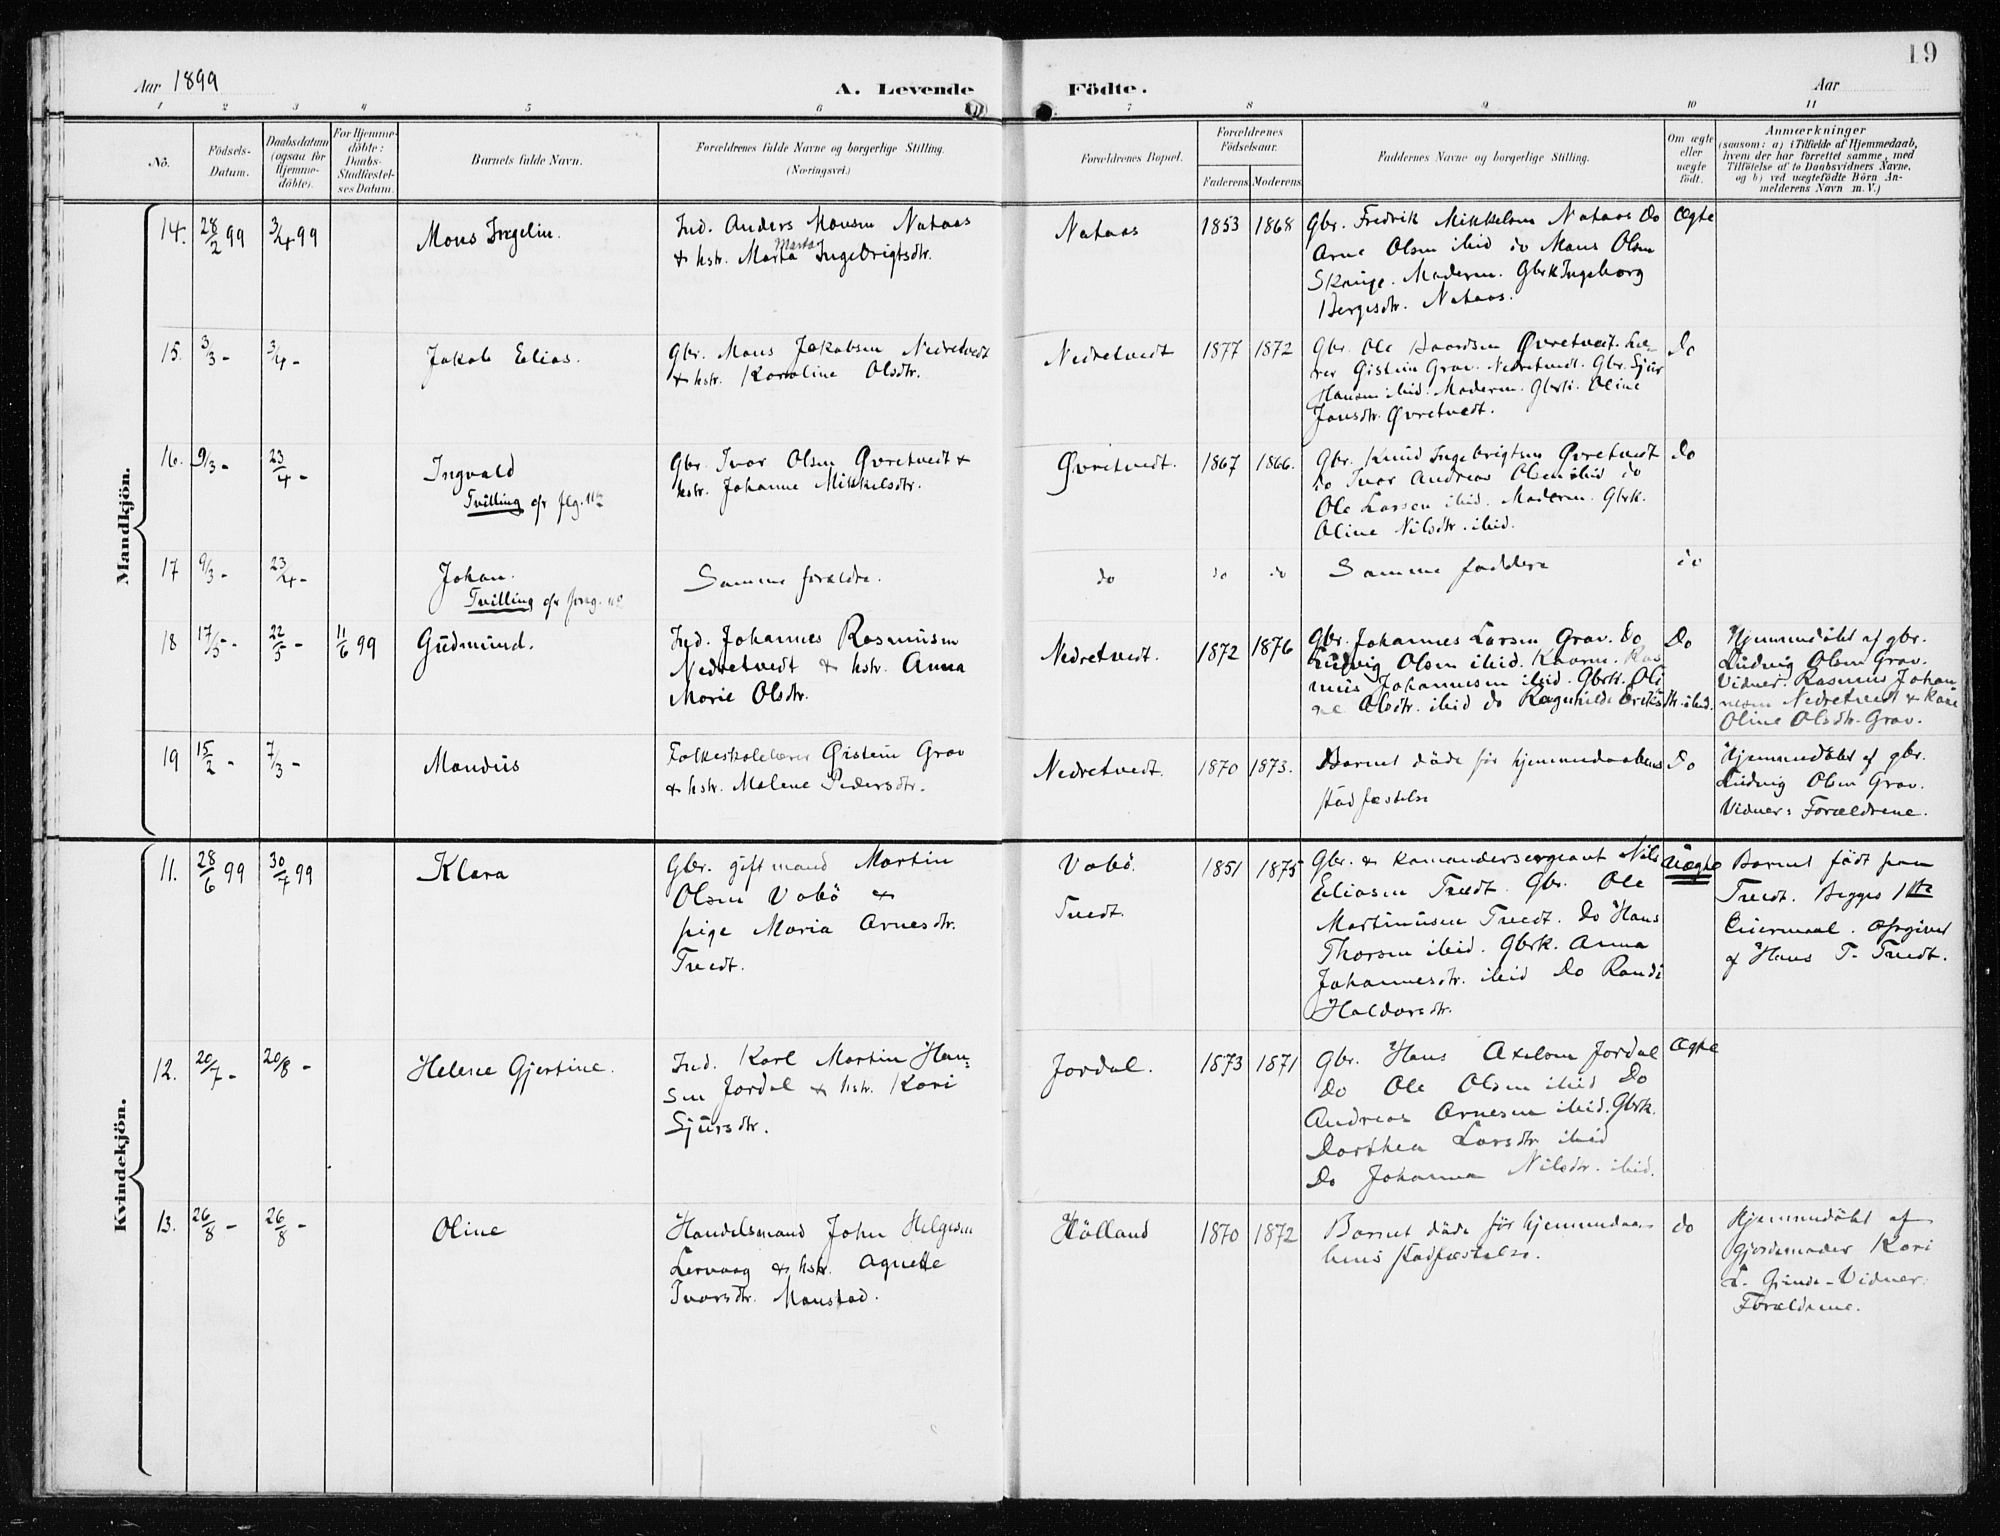 19
Aar 1899
A. Levende Födte.
Aar
1 2 3 4 5 6 7 8 9 10 11
No.
Födsels-Datum.
Daabsdatum (ogsaa for Hjemmedöbte).
For Hjemmedöbte: Daabs-Stadfæstelses Datum.
Barnets fulde Navn.
Forældrenes fulde Navne og borgerlige Stilling. (Næringsvei.)
Forældrenes Bopæl.
Forældrenes Födselsaar.
Faderens Moderens
Faddernes Navne og borgerlige Stilling.
Om ægte eller uægte födt.
Anmærkninger
(saasom: a) i Tilfælde af Hjemmedaab, hvem der har forrettet samme, med Tilföielse af to Daabsvidners Navne, og b) ved uægtefödte Börn Anmelderens Navn m. V.)
Mandkjön.
14. 28/2 99 3/4 99
Mons Ingelin.
Ind. Anders Monsen Nataas
& hstr. Marta Ingebrigtsdtr.
Marta
Nataas
1853 1868
Gbr. Fredrik Mikkelsen Nataas do
Arne Olsen ibid do Mons Olsen
Skauge. Moderen. Gbrk Ingeborg
Bergesdtr. Nataas.
Ægte
15. 3/3 - 3/4 -
Jakob Elias.
Gbr. Mons Jakobsen Nedretvedt
& hstr. Karoline Olsdtr.
Nedretvedt
1877 1872
Gbr. Ole Baardsen Øvretvedt. Læ-
rer Øistein Grav. Nedretvedt. Gbr. Sjur
Hansen ibid. Moderen. Gbrk. Oline
Jonsdtr. Øvretvedt.
Do
16. 9/3 - 23/4 -
Ingvald
Tvilling cfr flg. No
Gbr. Ivar Olsen Øvretvedt &
hstr. Johanne Mikkelsdtr.
Øvretvedt.
1867 1866.
Gbr. Knud Ingebrigtsen Øvretvedt
do Ivar Andreas Olsen ibid do
Ole Larsen ibid. Moderen. Gbrk.
Oline Nilsdtr. ibid.
Do
17 9/3 - 23/4 -
Johan.
Tvilling cfr forrg. No
Samme forældre.
do do do
Samme faddere
do
18 17/5 - 22/5 - 11/6 99
Gudmund.
Ind. Johannes Rasmusen
Nedretvedt & hstr. Anna
Marie Olsdtr.
Nedretvedt.
1872 1876
Gbr. Johannes Larsen Grav. Do
Ludvig Olsen ibid. Kaarm. Ras-
mus Johannesen ibid. Gbrk. Oli
ne Olsdtr. ibid do Ragnhilde Eriksdtr. ibid.
Do
Hjemmedöbt af gbr.
Ludvig Olsen Grav.
Vidner. Rasmus Johan-
nesen Nedretvedt & Kone
Oline Olsdtr. Grav.
19 15/2 - 7/3 -
Mandus
Folkeskolelærer Øistein Grav
& hstr. Malene Pedersdtr.
Nedretvedt.
1870 1873.
Barnet döde för hjemmedaabens
stadfæstelse
Do
Hjemmedöbt af gbr.
Ludvig Olsen Grav.
Vidner: Forældrene.
Kvindekjön.
11. 28/6 99 30/7 99
Klara
Gbr. gift mand Martin
Olsen Vabö &
pige Maria Arnesdtr.
Tvedt.
Vabö.
Tvedt.
1851 1875
Gbr. & kommandersergeant Nils
Eliasen Tvedt. Gbr. Ole
Martinusen Tvedt. Do Hans
Thorsen ibid. Gbrk. Anna
Johannesdtr. ibid Do Randi
Haldorsdtr.
Uægte
Barnet födt paa
Tvedt. Begges 1ste
Leiermaal. Opgivet
af Hans T. Tvedt.
12. 20/7 - 20/8 -
Helene Gjertine.
Ind. Karl Martin Han-
sen Jordal & hstr. Kari
Sjursdtr.
Jordal.
1873 1871
Gbr. Hans Axelsen Jordal
Do Ole Olsen ibid Do
Andreas Arnesen ibid. Gbrk.
Dorthea Larsdtr ibid
Do Johanna Nilsdtr. ibid.
Ægte
13. 26/8 - 26/8 -
Oline
Handelsmand John Helgesen
Lervaag & hstr. Agnette
Ivarsdtr. Monstad.
Hölland
1870 1872
Barnet döde för hjemmedaa-
bens stadfæstelse.
do
Hjemmedöbt af
gjordemoder Kari
L. Grinde - Vidner:
Forældrene.